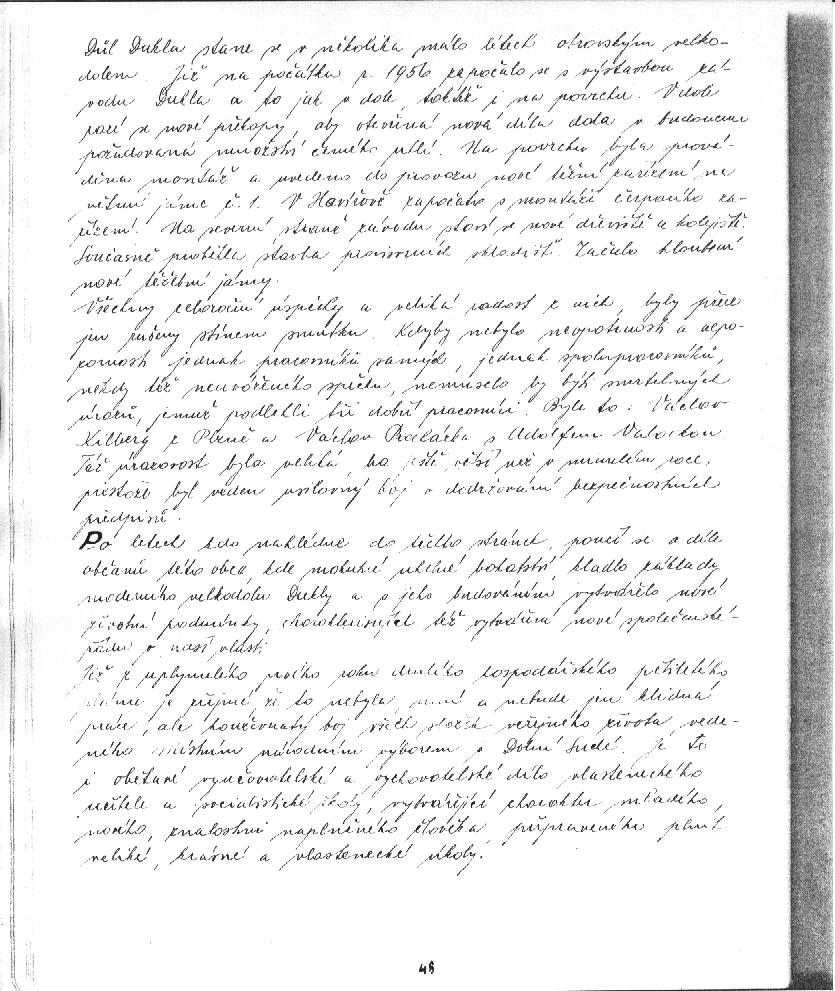 Důl Dukla stane se v několika málo létech obrovským velko-
dolem. Již na počátku r. 1956 započalo se s výstavbou zá-
vodu Dukla a to jak v dole, takéž i na povrchu. V dole
razí se nové překopy, aby otevřená nová díla dala v budoucnu
požadovaná množství černého uhlí. Na povrchu byla prová-
děna montáž a uvedeno do provozu nové těžní zařízení na
větrní jámě č. 1. V Havířově započato s montáží čerpacího za-
řízení. Na severní straně závodu staví se nové dřeviště a kolejiště.
Současně proběhla stavba provisorních skladišť. Začalo hloubení
nové těžební jámy.
Všechny celoroční úspěchy a veliká radost z nich, byly přece
jen rušeny stínem smutku. Kdyby nebylo neopatrnosti a nepo-
zornosti jednak pracovníků samých, jednak spolupracovníků,
někdy též neuváženého spěchu, nemuselo by býti smrtelných
úrazů, jemuž podlehli tři dobří pracovníci. Byli to: Václav
Kilberg z Plzně a Václav s Adolfem
Též úrazovost byla velká, ba ještě větší než v minulém roce,
přestože byl veden usilovný boj o dodržování bezpečnostních
předpisů.
Po letech kdo nahlédne do těchto stránek, poučí se o díle
občanů této obce, kde mohutné uhelné bohatství, kladlo základy
moderního velkodolu Dukly a s jeho budováním vytvářelo nové
životní podmínky, charakterisující též vytváření nové společenské-
řádu v naší vlasti.
Již z uplynulého prvého roku druhého hospodářského pětiletého
plánu je zřejmé, že to nebyla, není a nebude jen klidná
práce, ale houževnatý boj všech složek veřejného života, vede-
ného místním národním výborem v Dolní Suché. Je to
i obětavé vyučovatelské a vychovatelské dílo vlasteneckého
učitele a socialistické školy, vytvářející charakter mladého,
nového, znalostmi naplněného člověka připraveného plnit
veliké, krásné a vlastenecké úkoly.
48